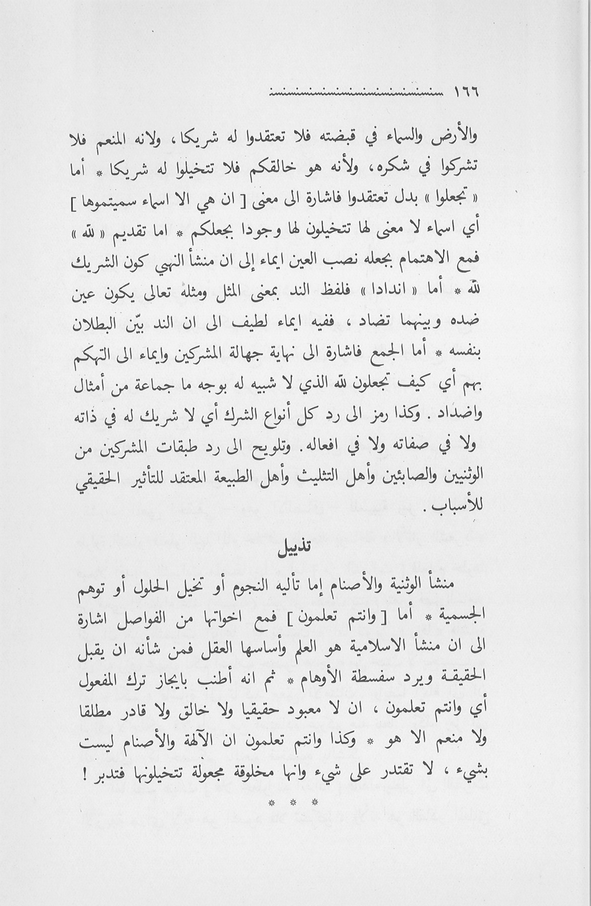 ١٦٦
والأرض والسماء في قبضته فلا تعتقدوا له شريكا، ولانه المنعم فلا
تشركوا في شكره، ولأنه هو خالقكم فلا تتخيلوا له شريكا * أما
« تجعلوا » بدل تعتقدوا فاشارة الى معنى [ ان هي الا اسماء سميتموها ]
أي اسماء لا معنى لها تتخيلون لها وجودا بجعلكم * اما تقديم « لله »
فمع الاهتمام بجعله نصب العين ايماء إلى ان منشأ النهي كون الشريك
لله * أما « اندادا » فلفظ الند بمعنى المثل ومثله تعالى يكون عين
ضده وبينهما تضاد ، ففيه ايماء لطيف الى ان الند بيّن البطلان
بنفسه * أما الجمع فاشارة الى نهاية جهالة المشركين وايماء الى التهكم
بهم أي كيف تجعلون لله الذي لا شبيه له بوجه ما جماعة من أمثال
واضداد . وكذا رمز الى رد كل أنواع الشرك أي لا شريك له في ذاته
ولا في صفاته ولا في افعاله. وتلويح الى رد طبقات المشركين من
الوثنيين والصابئين وأهل التثليث وأهل الطبيعة المعتقد للتأثير الحقيقي
للأسباب .
تذييل
منشأ الوثنية والأصنام إما تأليه النجوم أو تخيل الحلول أو توهم
الجسمية * أما [ وانتم تعلمون ] فمع اخواتها من الفواصل اشارة
الى ان منشأ الاسلامية هو العلم وأساسها العقل فمن شأنه ان يقبل
الحقيقة ويرد سفسطة الأوهام * ثم انه أطنب بايجاز ترك المفعول
أي وانتم تعلمون ، ان لا معبود حقيقيا ولا خالق ولا قادر مطلقا
ولا منعم الا هو * وكذا وانتم تعلمون ان الآلهة والأصنام ليست
بشيء ، لا تقتدر على شيء وانها مخلوقة مجعولة تتخيلونها فتدبر !
* * *